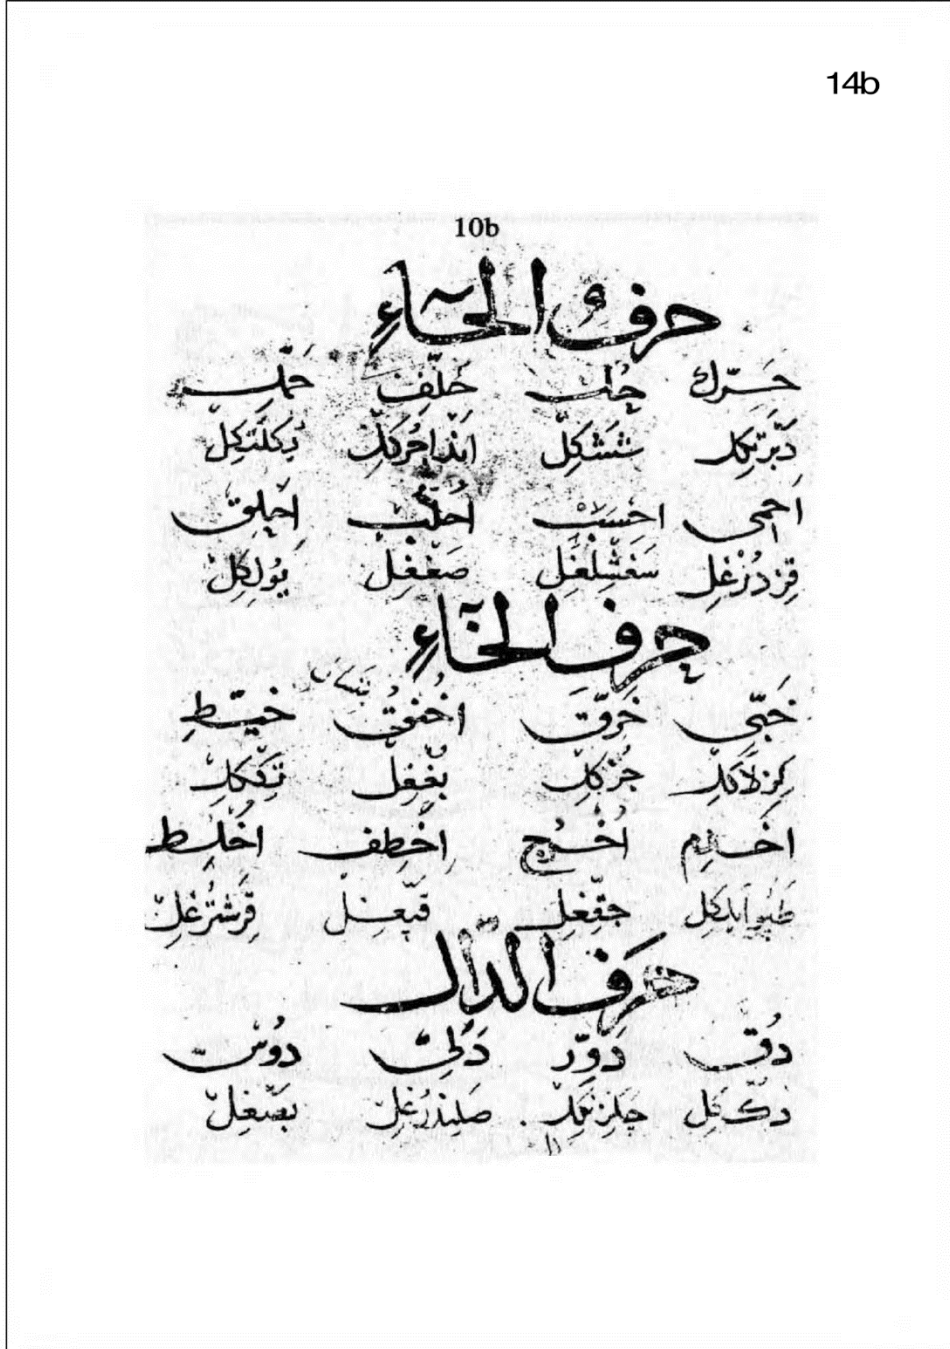 14b
10b
حرف الحاء
حَرّك حُك حَلّف حَمّلِ
دَبَرتكِل شَشكِل انداحُركِل يُكلتكِل
احمى احسب اُحلُب اِحلِق
قِزدُرْغِل سَغشلغِل صَغغِل يُولكِل
حرف الخاء
خَبّى خَرّق اخنق خيّط
كِزلاكل جُزكِل بُغغل تككِل
اخدم اُخرج اخطف اخلط
طبُو ايلكل جقغِل قبغل قرشترغل
حرف الدال
دُق دَوّر دَلّى دُوس
دكّكل جلزنكِل صلندرغل بَصغِل